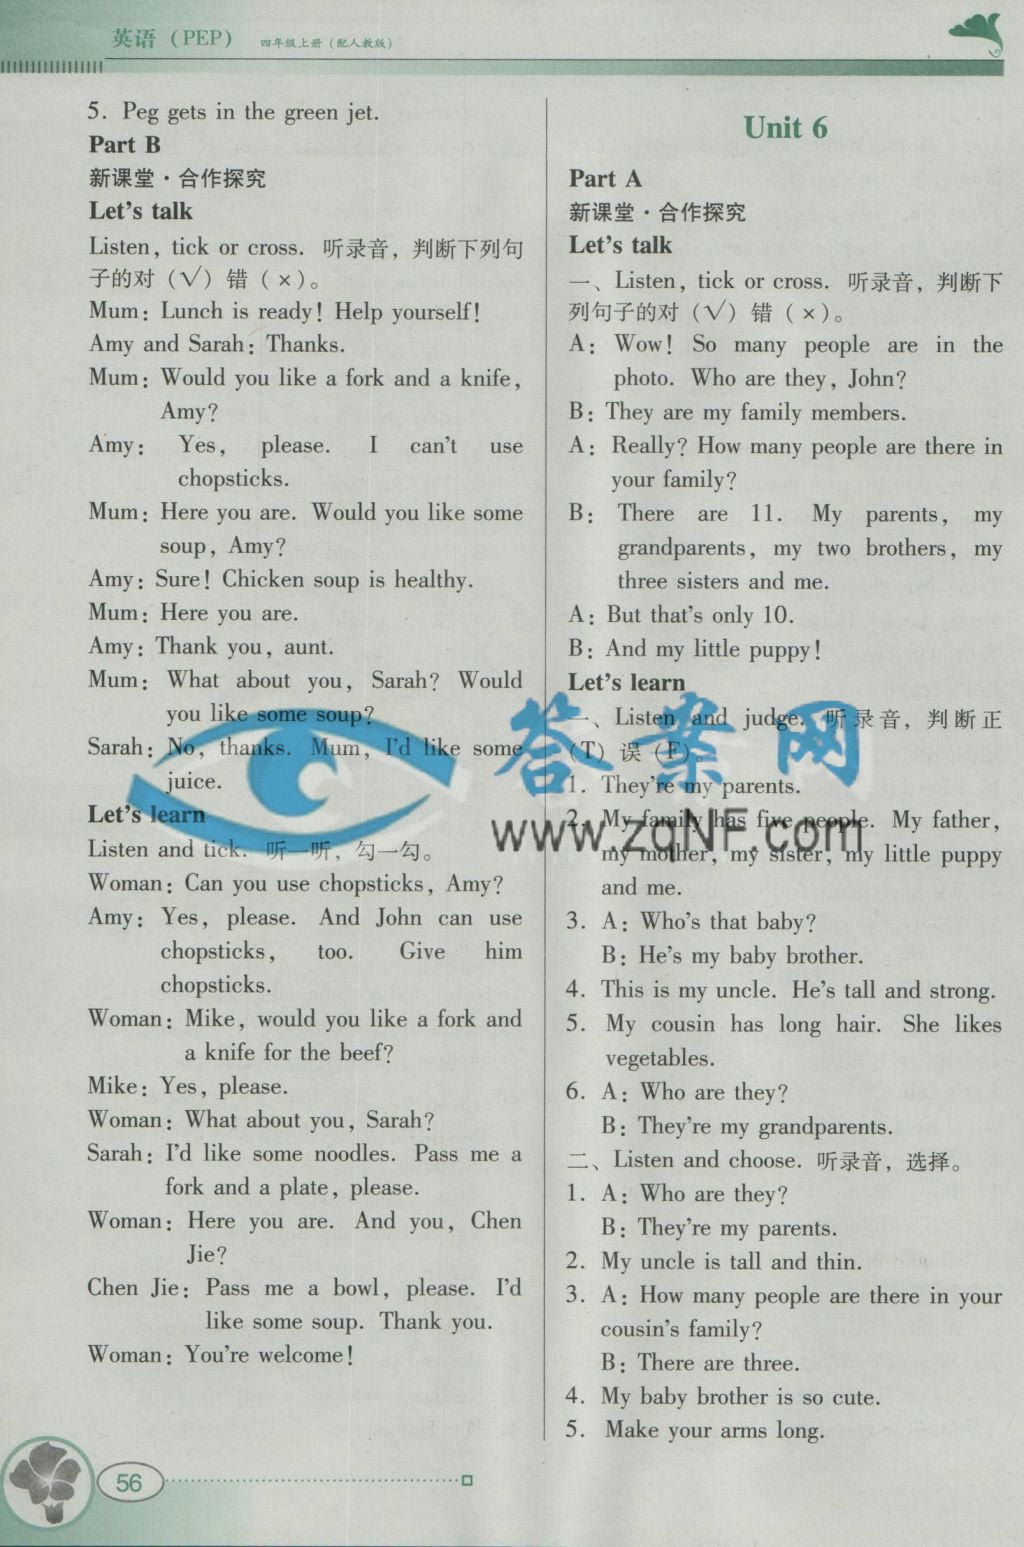 英语（PEP） 四年级上册（配人教版）
5. Peg gets in the green jet.
Part B
新课堂·合作探究
Let's talk
Listen, tick or cross. 听录音，判断下列句
子的对（√）错（×）。
Mum: Lunch is ready! Help yourself!
Amy and Sarah: Thanks.
Mum: Would you like a fork and a knife,
Amy?
Amy: Yes, please. I can't use
chopsticks.
Mum: Here you are. Would you like some
soup, Amy?
Amy: Sure! Chicken soup is healthy.
Mum: Here you are.
Amy: Thank you, aunt.
Mum: What about you, Sarah? Would
you like some soup?
Sarah: No, thanks. Mum, I'd like some
juice.
Let's learn
Listen and tick. 听一听，勾一勾。
Woman: Can you use chopsticks, Amy?
Amy: Yes, please. And John can use
chopsticks, too. Give him
chopsticks.
Woman: Mike, would you like a fork and
a knife for the beef?
Mike: Yes, please.
Woman: What about you, Sarah?
Sarah: I'd like some noodles. Pass me a
fork and a plate, please.
Woman: Here you are. And you, Chen
Jie?
Chen Jie: Pass me a bowl, please. I'd
like some soup. Thank you.
Woman: You're welcome!
Unit 6
Part A
新课堂·合作探究
Let's talk
一、Listen, tick or cross. 听录音，判断下
列句子的对（√）错（×）。
A: Wow! So many people are in the
photo. Who are they, John?
B: They are my family members.
A: Really? How many people are there in
your family?
B: There are 11. My parents, my
grandparents, my two brothers, my
three sisters and me.
A: But that's only 10.
B: And my little puppy!
Let's learn
一、Listen and judge. 听录音，判断正
（T）误（F）。
1. They're my parents.
2. My family has five people. My father,
my mother, my sister, my little puppy
and me.
3. A: Who's that baby?
B: He's my baby brother.
4. This is my uncle. He's tall and strong.
5. My cousin has long hair. She likes
vegetables.
6. A: Who are they?
B: They're my grandparents.
二、Listen and choose. 听录音，选择。
1. A: Who are they?
B: They're my parents.
2. My uncle is tall and thin.
3. A: How many people are there in your
cousin's family?
B: There are three.
4. My baby brother is so cute.
5. Make your arms long.
答案网
www.zqNF.com
56